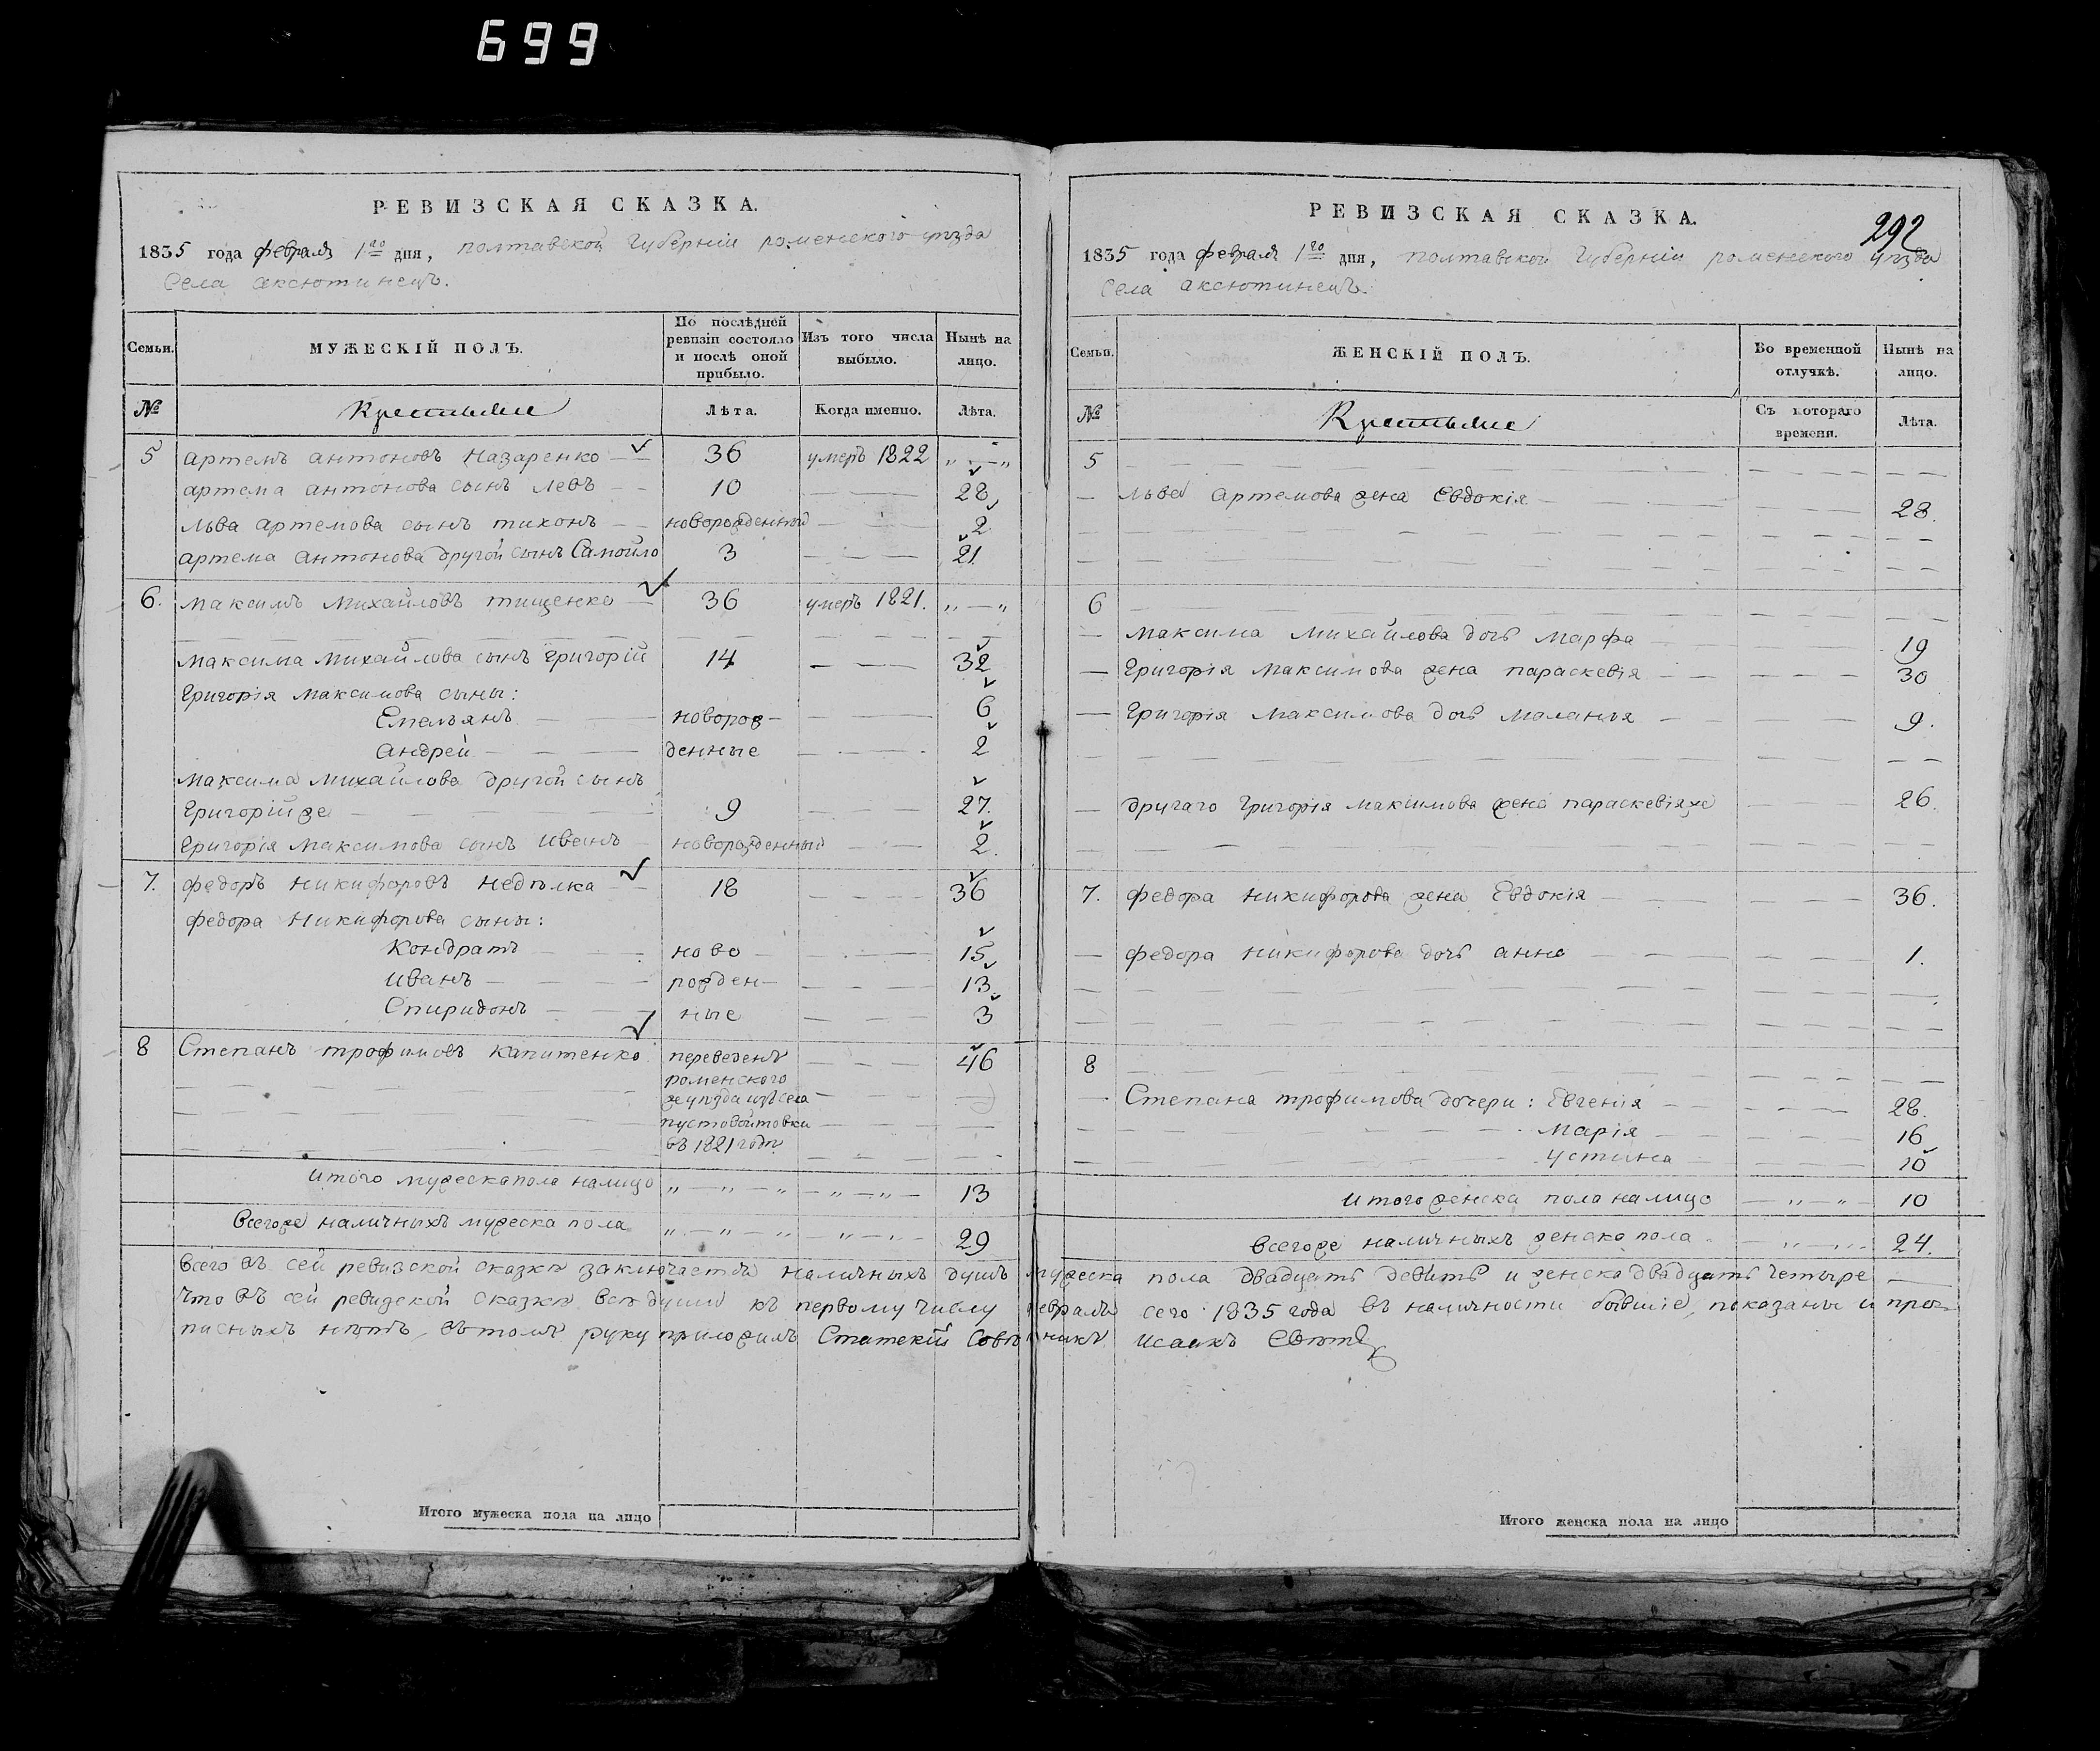 699
РЕВИЗСКАЯ СКАЗКА.
1835 года февраля 1го дня, полтавской Губерніи роменского уѣзда
Села аксютинецъ.
Семьи.
МУЖЕСКІЙ ПОЛЪ.
По послѣдней ревизіи состояло и послѣ оной прибыло.
Изъ того числа выбыло.
Нынѣ на лицо.
№
Крестьяне
Лѣта.
Когда именно.
Лѣта.
5 артемъ антоновъ Назаренко 36 умеръ 1822 „ — „
артема антонова сынъ левъ 10 28
льва артемова сынъ тихонъ новорожденный 2
артема антонова другой сынъ Самойло 3 21.
6. максимъ михайловъ тищенко 36 умеръ 1821. „ — „
максима михайлова сынъ григорій 14 32
григорія максимова сыны:
Емельянъ новорож- 6
андрей денные 2
максима михайлова другой сынъ
григорій же 9 27.
григорія максимова сынъ иванъ новорожденный 2.
7. федоръ никифоровъ недѣлка 18 36
федора никифорова сыны:
Кондратъ ново 15
иванъ рожден- 13.
Спиридонъ ные 3
8 Степанъ трофимовъ капитенко переведенъ 46
роменского
же уѣзда изъ села
пустовойтовки
въ 1821 годѣ
итого мужеска пола налицо „ — „ — „ — „ — „ — 13
Всегоже наличныхъ мужеска пола „ — „ — „ — „ — „ 29
РЕВИЗСКАЯ СКАЗКА.
292
1835 года февраля 1го дня, полтавской Губерніи роменского уѣзда
Села аксютинецъ.
Семьи.
ЖЕНСКІЙ ПОЛЪ.
Во временной отлучкѣ.
Нынѣ на лицо.
№
Крестьяне
Съ котораго времени.
Лѣта.
5
льва артемова жена Евдокія 28.
6
максима михайлова дочь марфа 19
григорія максимова жена параскевія 30
григорія максимова дочь маланья 9.
другаго григорія максимова жена параскевія же 26.
7. федора никифорова жена Евдокія 36.
федора никифорова дочь анна 1.
8
Степана трофимова дочери: Евгенія 28.
марія 16
устина 10
итого женска пола налицо — „ — „ 10
всегоже наличныхъ женска пола — „ — „ 24.
всего въ сей ревизской сказкѣ заключается наличныхъ душъ мужеска пола двадцать девять и женска двадцать четыре
что въ сей ревизской сказкѣ всѣ души къ первому числу февраля сего 1835 года въ наличности бывшіе, показаны и про-
писныхъ нѣтъ, въ томъ руку приложилъ Статскій Совѣтникъ исаакъ
Итого мужеска пола на лицо
Итого женска пола на лицо